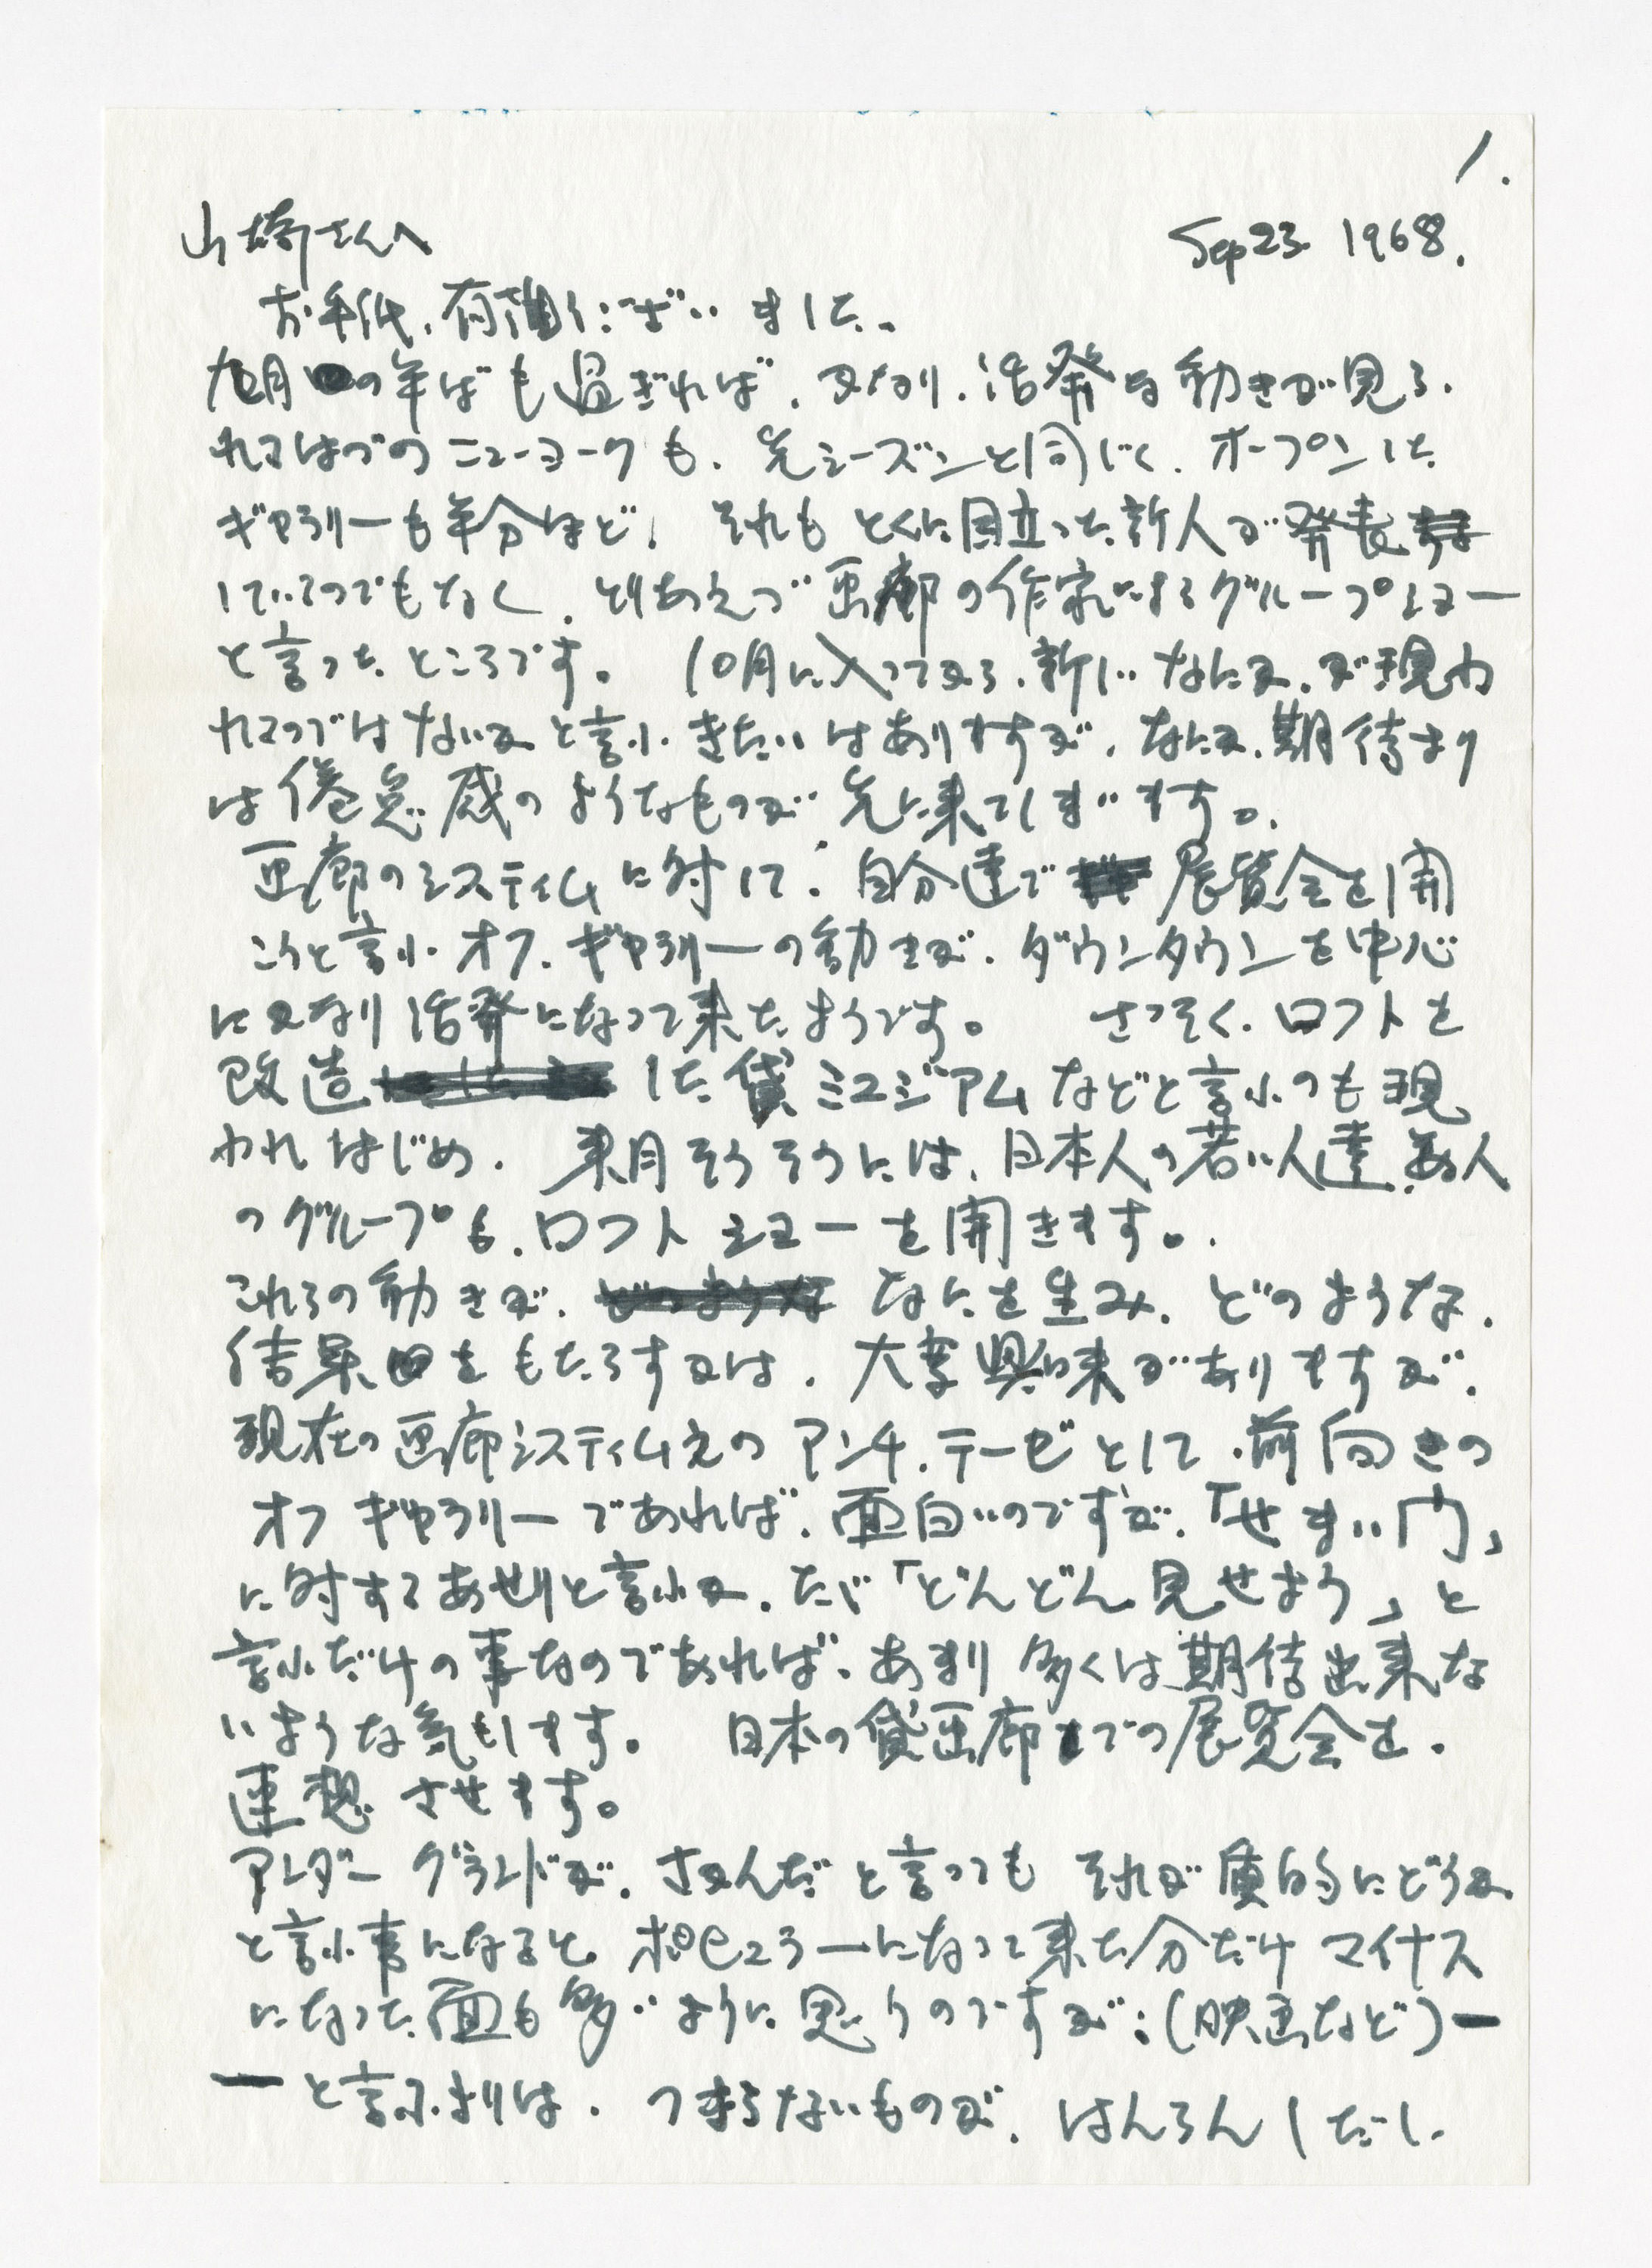 1.
山崎さんへ
Sep 23 1968.
お手紙、有難うございました。
九月の半ばも過ぎれば、かなり、活発な動きが見ら
れるはづのニューヨークも、先シーズンと同じく、オープンした
ギャラリーも半分ほど、それもとくに目立った新人が発表
しているのでもなく、とりあえづ画廊の作家によるグループショー
と言ったところです。 10月に入ってから、新しいなにか、が現わ
れるのではないかと言ふきたいはありますが、なにか、期待より
は倦怠感のようなものが先に来てしまいます。
画廊のシスティムに対して、自分達で 展覧会を開
こうと言ふオフ、ギャラリーの動きが、ダウンタウンを中心
にかなり活発になって来たようです。 さっそく、ロフトを
改造 した貸ミュジアムなどと言ふのも現
われはじめ、来月そうそうには、日本人の若い人達、数人
のグループも、ロフトショーを開きます。
これらの動きが、 なにを生み、どのような、
結果をもたらすかは、大変興味がありますが、
現在の画廊システィムえのアンチ、テーゼとして、前向きの
オフギャラリーであれば、面白いのですが、「せまい門」
に対するあせりと言ふか、ただ「どんどん見せよう」と
言ふだけの事なのであれば、あまり多くは期待出来な
いような気もします。 日本の貸画廊での展覧会を、
連想させます。
アンダーグランドが、さかんだと言っても それが質的にどうか
と言ふ事になると、ポピュラーになって来た分だけマイナス
になった面も多いように思うのですが、(映画など)ー
ーと言ふよりは、つまらないものが、はんらんしだし、